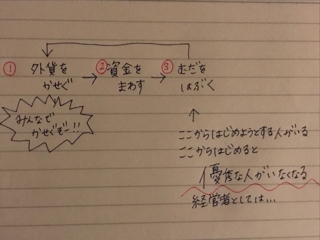 ① 外貨を
かせぐ
② 資金を
まわす
③ むだを
はぶく
みんなで
かせぐぞー!!
ここからはじめようとする人がいる
ここからはじめると
優秀な人がいなくなる
経営者としては…